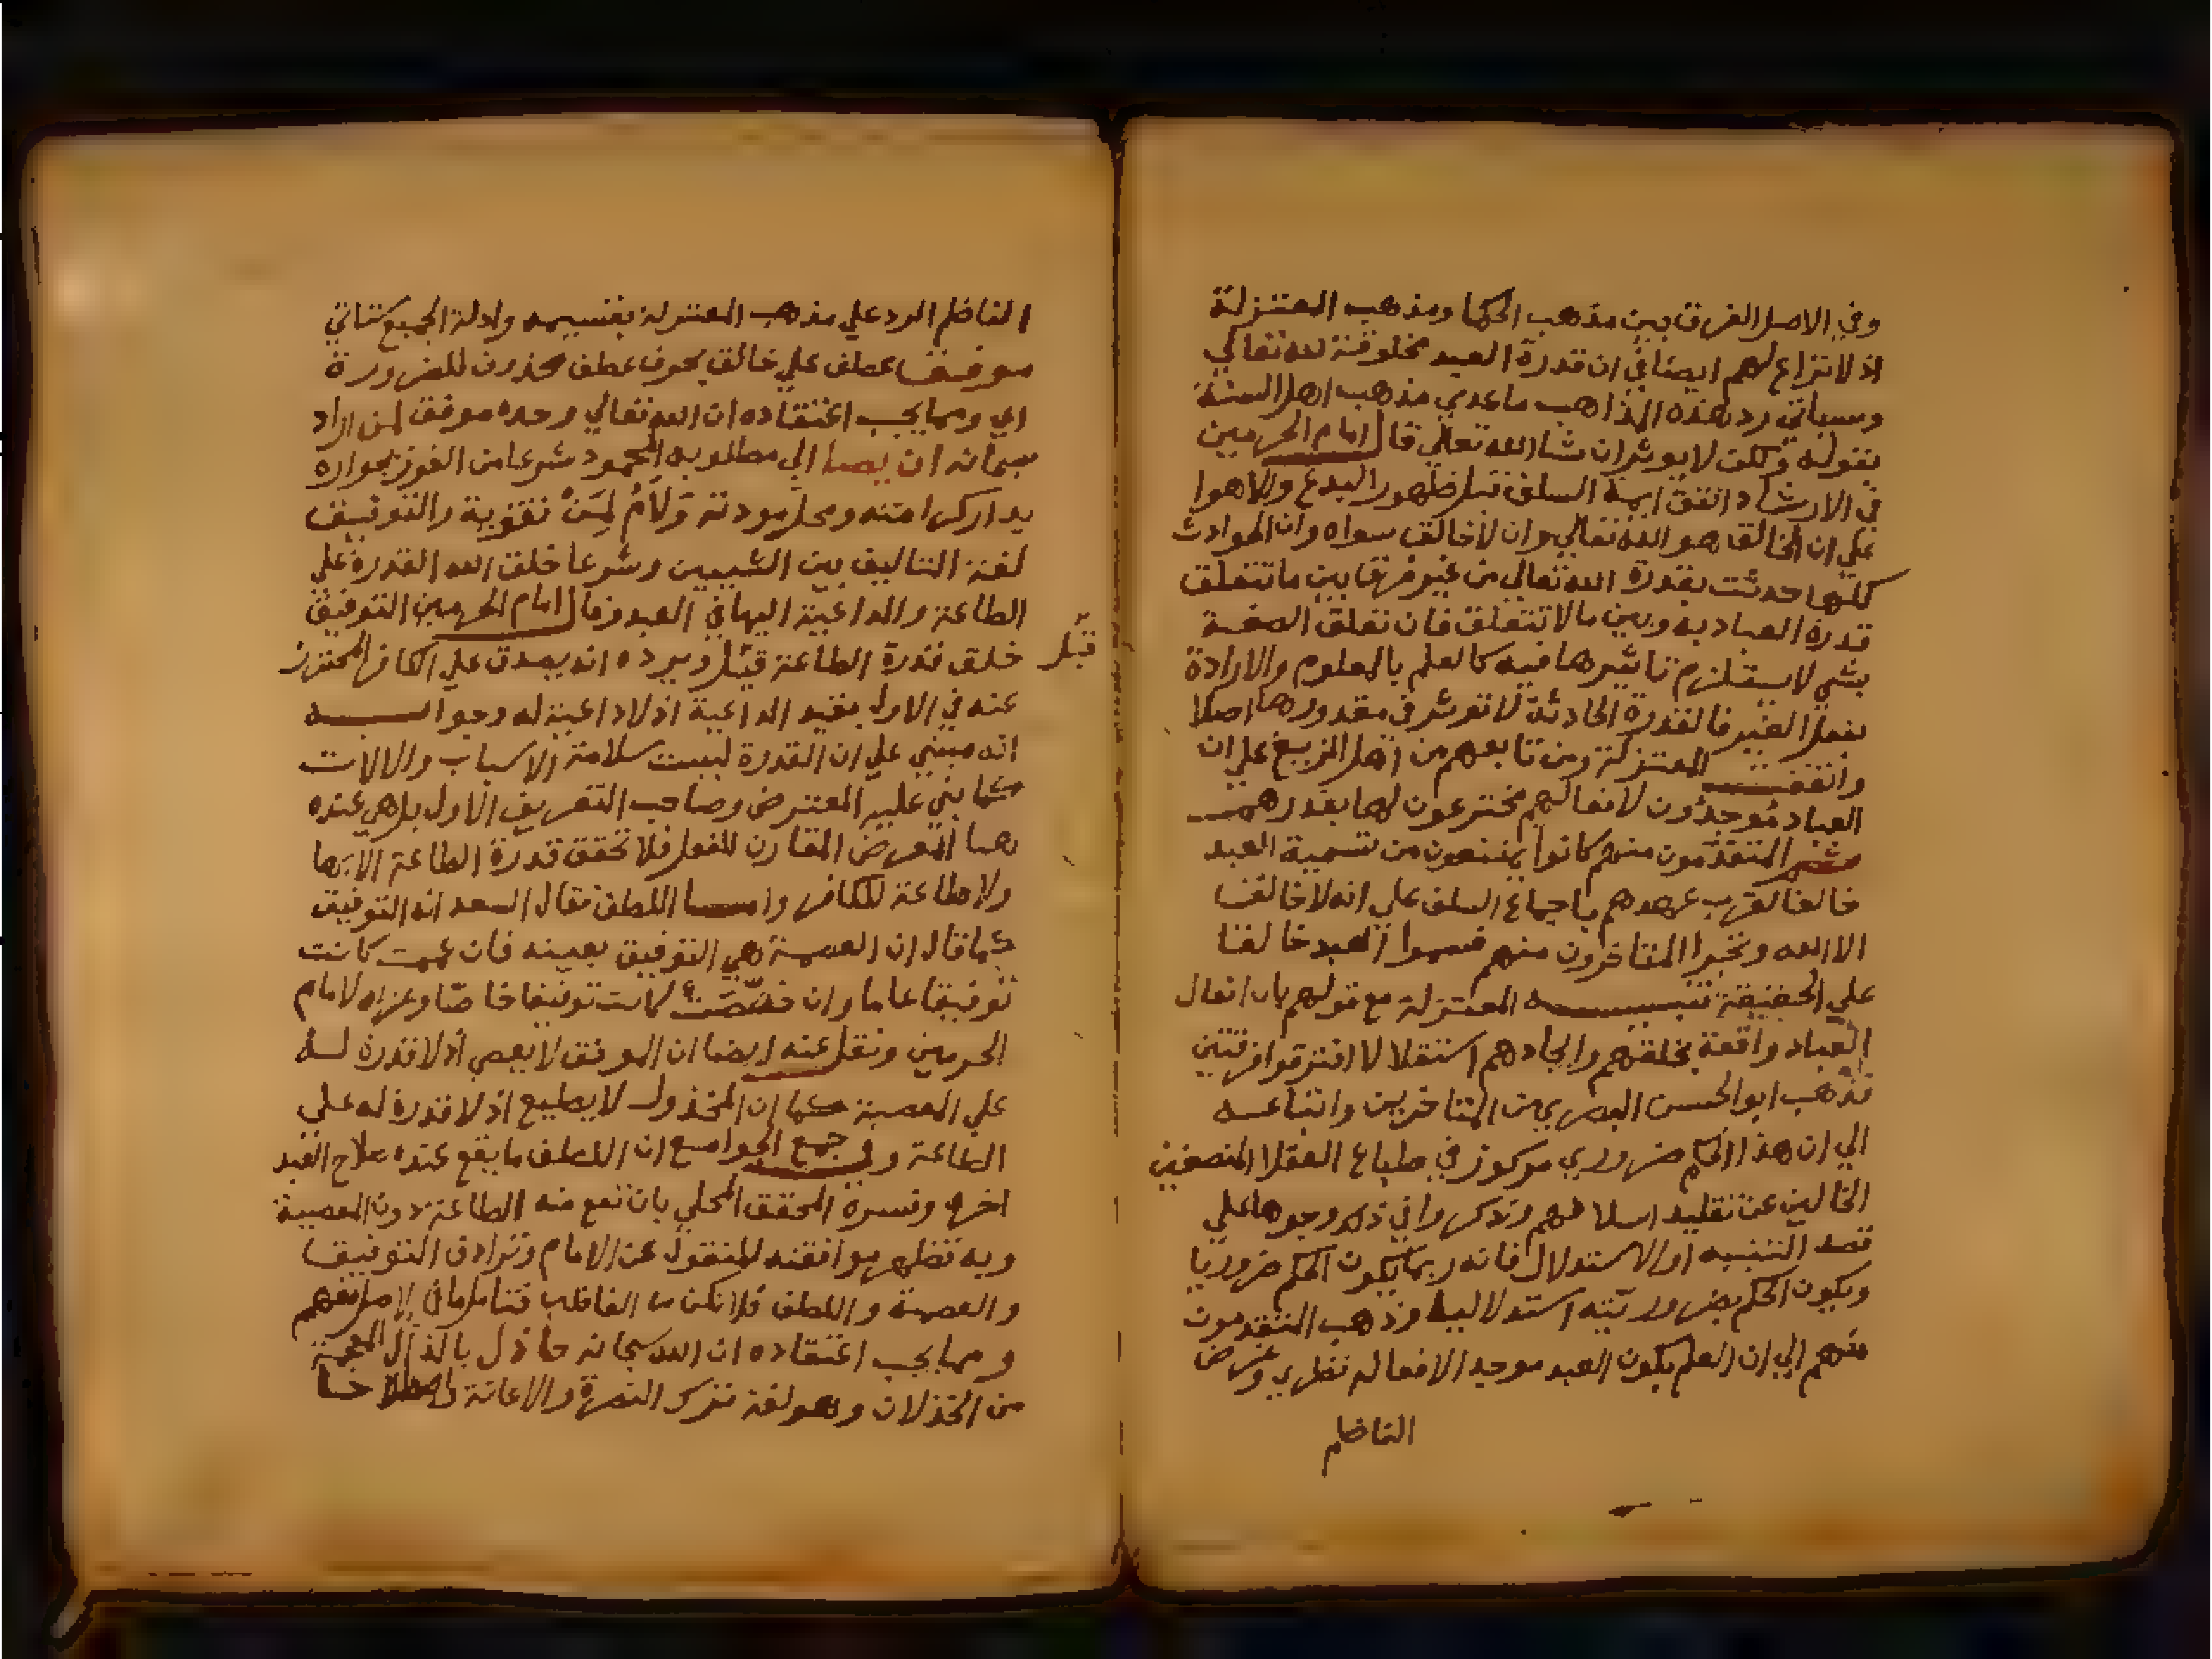 وفي الاصل الفرق بين مذهب الحكما ومذهب المعتزلة
اذ لا نزاع لهم ايضا في ان قدرة العبد مخلوقة لله تعالي
وسياتي رد هذه المذاهب ماعدي مذهب اهل السنة
بقوله ولكن لا يوثر ان شا الله تعالي قال امام الحرمين
في الارشاد اتفق ايمة السلف قبل ظهور البدع والاهوا
علي ان الخالق هو الله تعالي وان لا خالق سواه وان الحوادث
كلها حدثت بقدرة الله تعالي من غير فرق بين ما تتعلق
قدرة العباد به وبين ما لا تتعلق فان تعلق الصفة
بشي لا يستلزم تاثيرها فيه كالعلم بالمعلوم والارادة
بفعل الغير فالقدرة الحادثة لا توثر في مقدورها اصلا
واتفقت المعتزلة ومن تابعهم من اهل الزيغ علي ان
العباد موجدون لافعالهم مخترعون لها بقدرهم
ثم المتقدمون منهم كانوا يمتنعون من تسمية العبد
خالقا لقرب عهدهم باجماع السلف علي انه لا خالق
الا الله وتجرا المتاخرون منهم فسموا العبد خالقا
علي الحقيقة تنبيه المعتزلة مع قولهم بان افعال
العباد واقعة بخلقهم وايجادهم استقلالا افترقوا فرقتين
فذهب ابو الحسن البصري من المتاخرين واتباعه
الي ان هذا الحكم ضروري مركوز في طباع العقلا المنصفين
الخالين عن تقليد اسلافهم وذكروا في ذلك وجوها علي
قصد التنبيه او الاستدلال فانه ربما يكون الحكم ضروريا
ويكون الحكم بضروريته استدلاليا وذهب المتقدمون
منهم الي ان العلم بكون العبد موجد الافعاله نظري وغرض
الناظم
الناظم الرد علي مذهب المعتزلة بقسيمه وادلة الجميع ستاتي
موفق عطف علي خالق بحرف عطف محذوف للضرورة
اي ومما يجب اعتقاده ان الله تعالي وحده موفق لمن اراد
سبحانه ان يصل الي مطلوبه المحمود شرعا من الفوز بجواره
بدار كرامته ومحل مودته ولام لمن تقوية والتوفيق
لغة التاليف بين الشيين وشرعا خلق الله القدرة علي
الطاعة والداعية اليها في العبد وقال امام الحرمين التوفيق
خلق قدرة الطاعة قيل ويرده انه يصدق علي الكافر المحترز
قيل
عنه في الاول بقيد الداعية اذ لا داعية له وجوابه
انه مبني علي ان القدرة ليست سلامة الاسباب والالات
كما بني عليه المعترض وصاحب التعريف الاول بل هي عنده
العرض المقارن للفعل فلا تحقق قدرة الطاعة الا بها
ولا طاعة للكافر واما اللطف فقال السعد انه التوفيق
كما قال ان العصمة هي التوفيق بعينه فان عمت كانت
توفيقا عاما وان خصصت كانت توفيقا خاصا وعزاه لامام
الحرمين ونقل عنه ايضا ان الموفق لا يعصي اذ لا قدرة له
علي المعصية كما ان المخذول لا يطيع اذ لا قدرة له علي
الطاعة وفي جمع الجوامع ان اللطف ما يقع عنده صلاح العبد
اخرة وفسره المحقق المحلي بان تقع منه الطاعة دون المعصية
وبه تظهر موافقته للمنقول عن الامام وترادف التوفيق
والعصمة واللطف فلا تكن من الغافلين فتامل ما في الاصل تفهم
ومما يجب اعتقاده ان الله سبحانه خاذل بالذال المعجمة
من الخذلان وهو لغة ترك النصرة والاعانة واصطلاحا